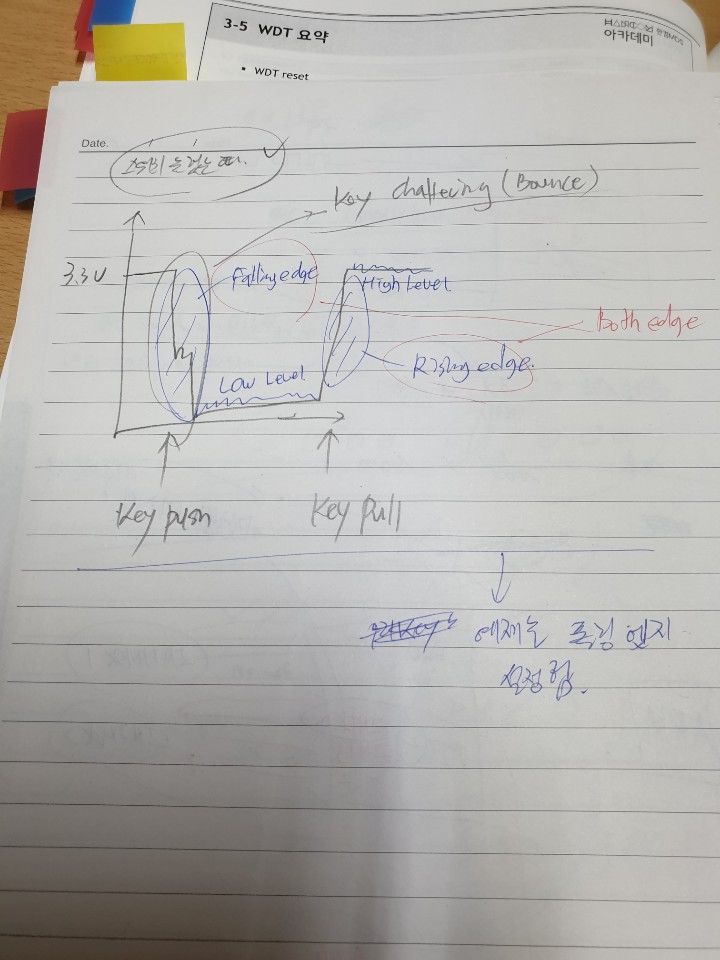 3-5 WDT 요약
아카데미
• WDT reset
Date.
Key Chattering (Bounce)
3.3V
Falling edge
High Level
Both edge
Low Level
Rising edge.
Key push
Key Pull
예제는 폴링 엣지
설정함.